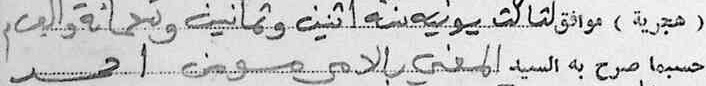 ( هجرية ) موافق لثالث يونيه سنة اثنين وثمانين وتسعمائة والف م
حسبما صرح به السيد المعني بالامر احمد